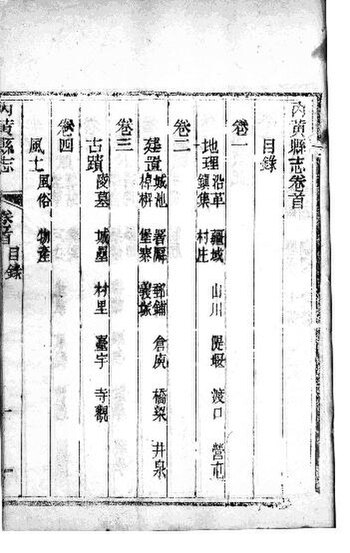 內黃縣志卷首
目錄
卷一
地理 沿革 疆域 山川 隄堰 渡口 營屯
鎮集 村庄
卷二
建置 城池 署廨 郵鋪 倉庾 橋梁 井泉
堡寨 義塚
卷三
古蹟 陵墓 城壘 村里 臺宇 寺觀
卷四
風土 風俗 物產
內黃縣志 卷首 目錄 一